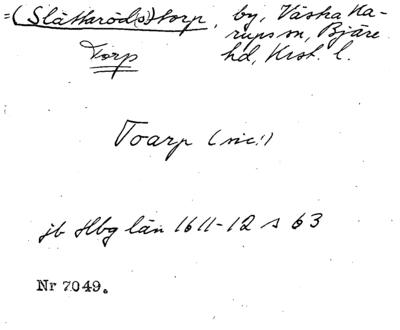 =(Slättaröd(s))torp, by, Västra Ka-
rups sn, Bjäre
Torp hd, Krist. l.
Toarp (sic!)
jb Hbg län 1611-12 s 63
Nr 7049.